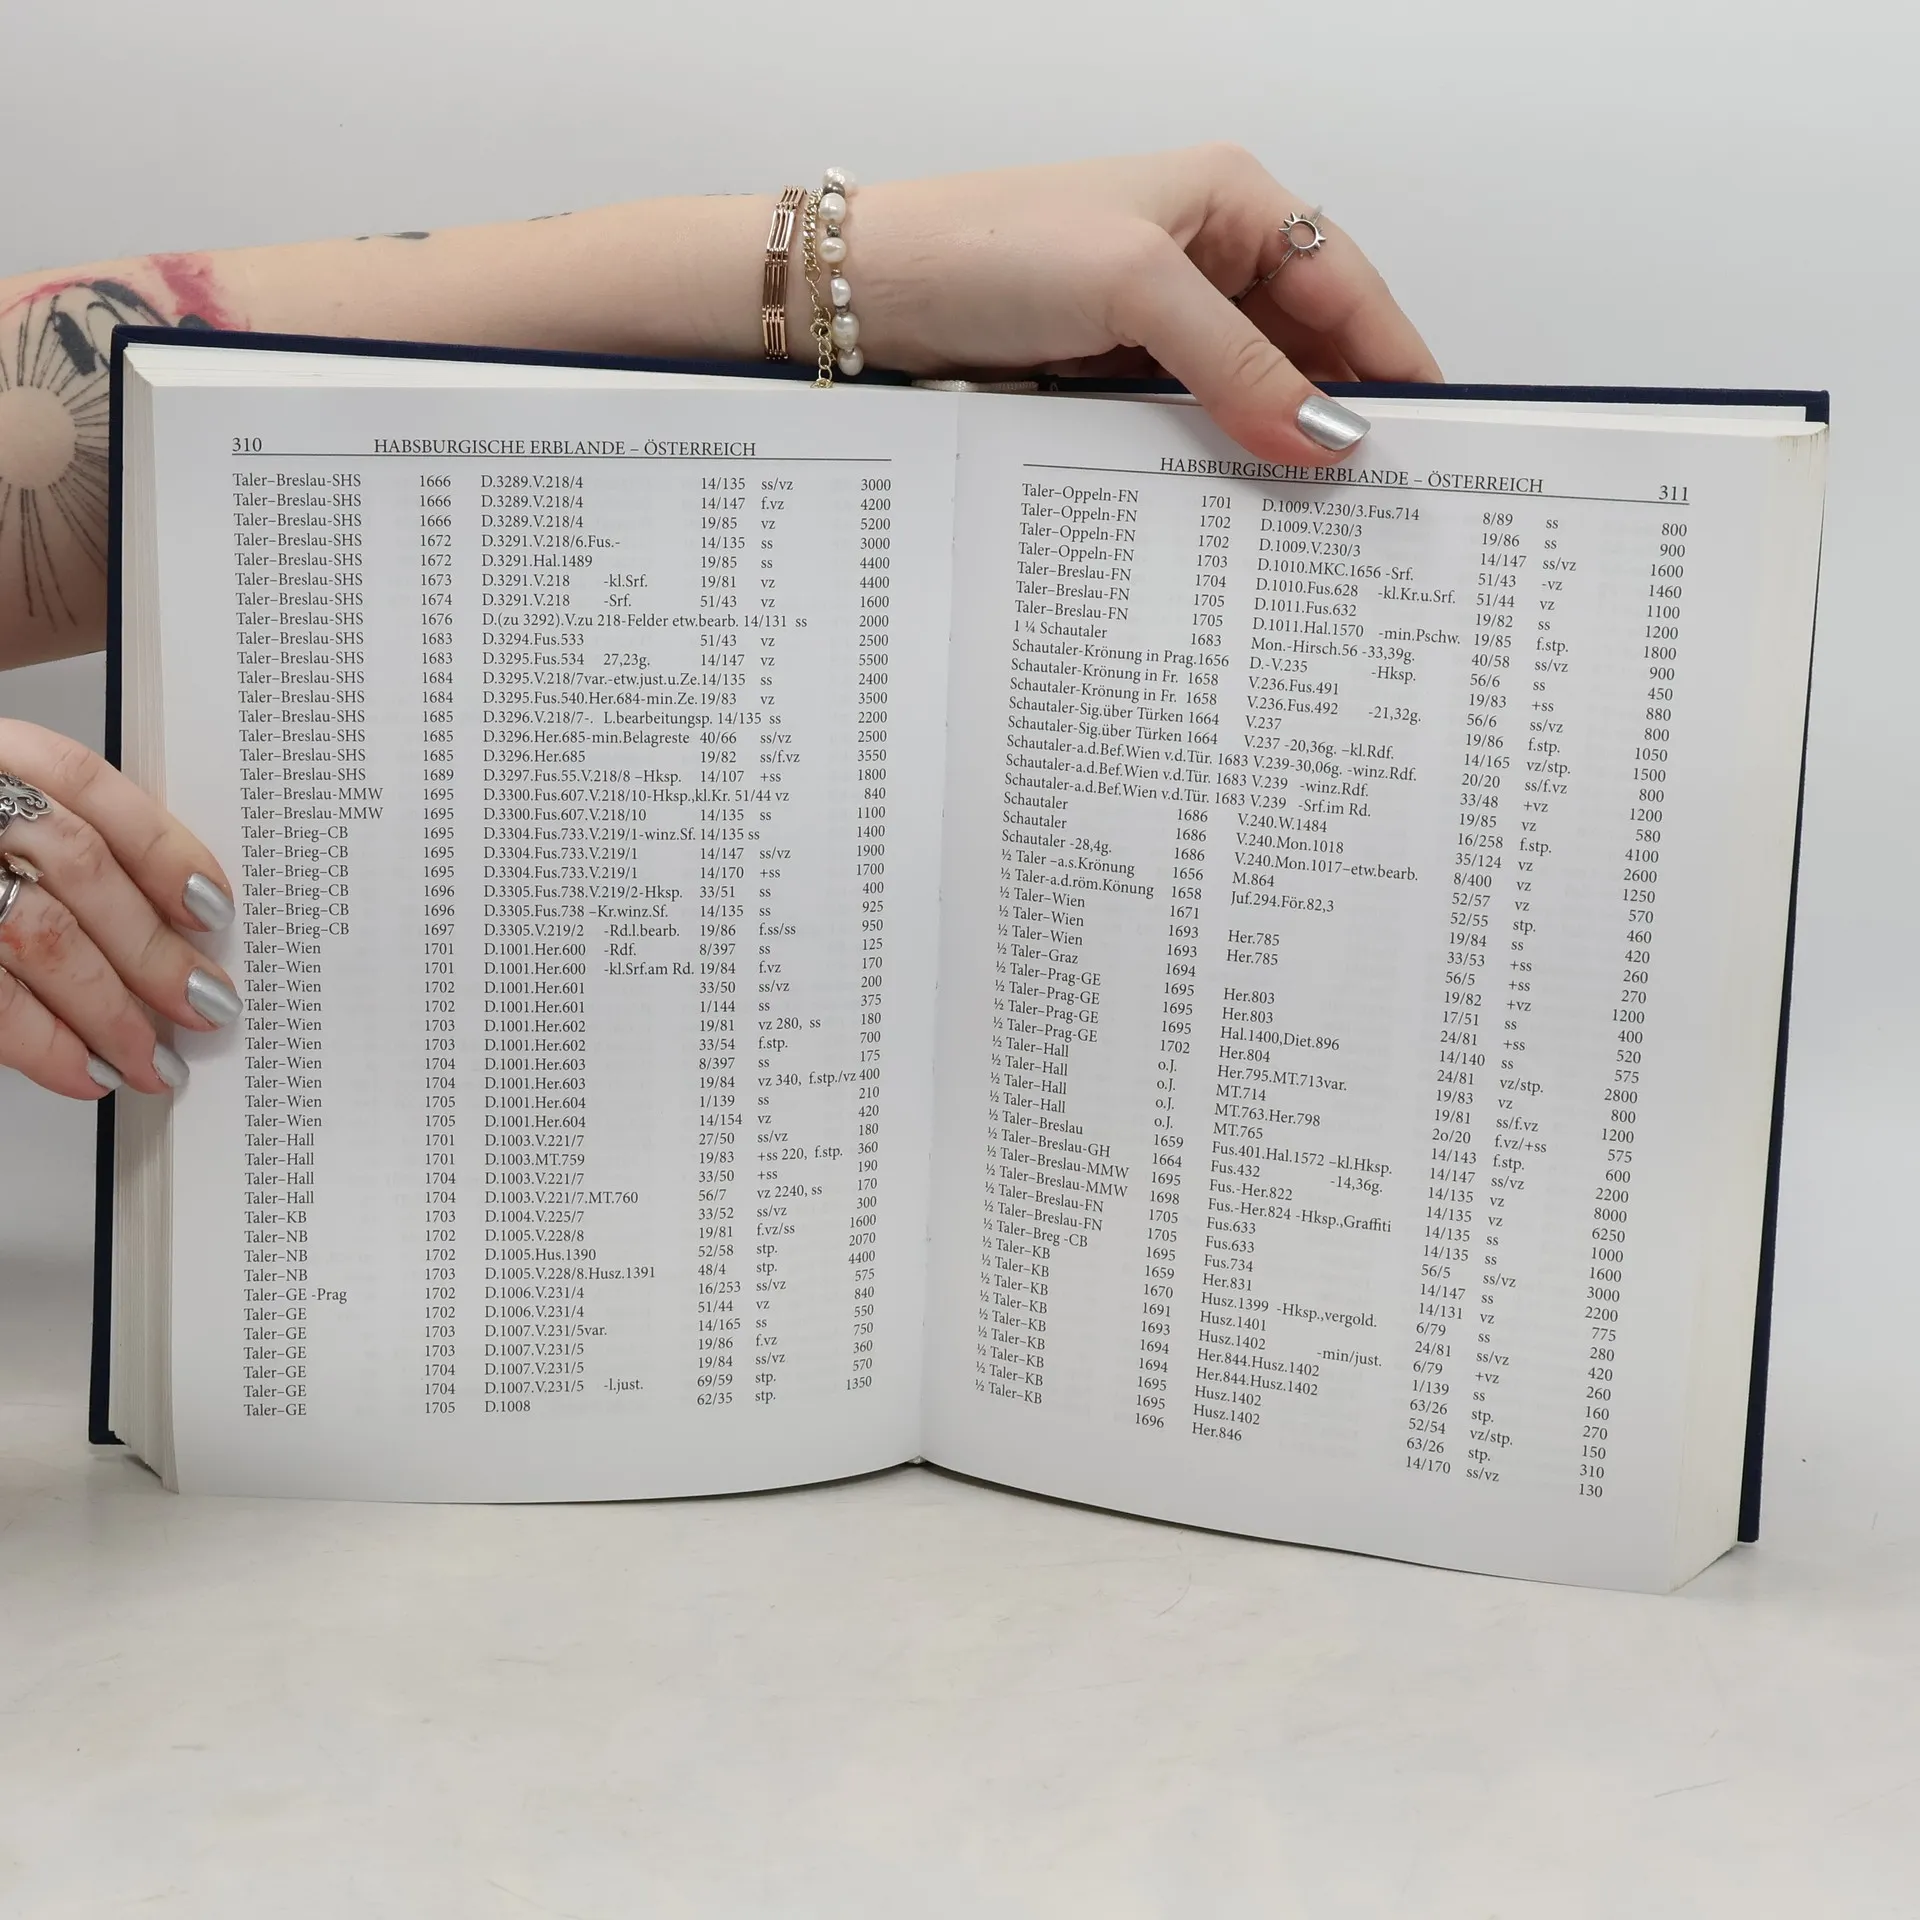 310 HABSBURGISCHE ERBLANDE – ÖSTERREICH
Taler–Breslau-SHS 1666 D.3289.V.218/4 14/135 ss/vz 3000
Taler–Breslau-SHS 1666 D.3289.V.218/4 14/147 f.vz 4200
Taler–Breslau-SHS 1666 D.3289.V.218/4 19/85 vz 5200
Taler–Breslau-SHS 1672 D.3291.V.218/6.Fus.- 14/135 ss 3000
Taler–Breslau-SHS 1672 D.3291.Hal.1489 19/85 ss 4400
Taler–Breslau-SHS 1673 D.3291.V.218 -kl.Srf. 19/81 vz 4400
Taler–Breslau-SHS 1674 D.3291.V.218 -Srf. 51/43 vz 1600
Taler–Breslau-SHS 1676 D.(zu 3292).V.zu 218-Felder etw.bearb. 14/131 ss 2000
Taler–Breslau-SHS 1683 D.3294.Fus.533 51/43 vz 2500
Taler–Breslau-SHS 1683 D.3295.Fus.534 27,23g. 14/147 vz 5500
Taler–Breslau-SHS 1684 D.3295.V.218/7var.-etw.just.u.Ze.14/135 ss 2400
Taler–Breslau-SHS 1684 D.3295.Fus.540.Her.684-min.Ze.19/83 vz 3500
Taler–Breslau-SHS 1685 D.3296.V.218/7-. L.bearbeitungsp. 14/135 ss 2200
Taler–Breslau-SHS 1685 D.3296.Her.685-min.Belagreste 40/66 ss/vz 2500
Taler–Breslau-SHS 1685 D.3296.Her.685 19/82 ss/f.vz 3550
Taler–Breslau-SHS 1689 D.3297.Fus.55.V.218/8 –Hksp. 14/107 +ss 1800
Taler–Breslau-MMW 1695 D.3300.Fus.607.V.218/10-Hksp.,kl.Kr. 51/44 vz 840
Taler–Breslau-MMW 1695 D.3300.Fus.607.V.218/10 14/135 ss 1100
Taler–Brieg–CB 1695 D.3304.Fus.733.V.219/1-winz.Sf. 14/135 ss 1400
Taler–Brieg–CB 1695 D.3304.Fus.733.V.219/1 14/147 ss/vz 1900
Taler–Brieg–CB 1695 D.3304.Fus.733.V.219/1 14/170 +ss 1700
Taler–Brieg–CB 1696 D.3305.Fus.738.V.219/2-Hksp. 33/51 ss 400
Taler–Brieg–CB 1696 D.3305.Fus.738 –Kr.winz.Sf. 14/135 ss 925
Taler–Brieg–CB 1697 D.3305.V.219/2 -Rd.l.bearb. 19/86 f.ss/ss 950
Taler–Wien 1701 D.1001.Her.600 -Rdf. 8/397 ss 125
Taler–Wien 1701 D.1001.Her.600 -kl.Srf.am Rd. 19/84 f.vz 170
Taler–Wien 1702 D.1001.Her.601 33/50 ss/vz 200
Taler–Wien 1702 D.1001.Her.601 1/144 ss 375
Taler–Wien 1703 D.1001.Her.602 19/81 vz 280, ss 180
Taler–Wien 1703 D.1001.Her.602 33/54 f.stp. 700
Taler–Wien 1704 D.1001.Her.603 8/397 ss 175
Taler–Wien 1704 D.1001.Her.603 19/84 vz 340, f.stp./vz 400
Taler–Wien 1705 D.1001.Her.604 1/139 ss 210
Taler–Wien 1705 D.1001.Her.604 14/154 vz 420
Taler–Hall 1701 D.1003.V.221/7 27/50 ss/vz 180
Taler–Hall 1701 D.1003.MT.759 19/83 +ss 220, f.stp. 360
Taler–Hall 1704 D.1003.V.221/7 33/50 +ss 190
Taler–Hall 1704 D.1003.V.221/7.MT.760 56/7 vz 2240, ss 170
Taler–KB 1703 D.1004.V.225/7 33/52 ss/vz 300
Taler–NB 1702 D.1005.V.228/8 19/81 f.vz/ss 1600
Taler–NB 1702 D.1005.Hus.1390 52/58 stp. 2070
Taler–NB 1703 D.1005.V.228/8.Husz.1391 48/4 stp. 4400
Taler–GE -Prag 1702 D.1006.V.231/4 16/253 ss/vz 575
Taler–GE 1702 D.1006.V.231/4 51/44 vz 840
Taler–GE 1703 D.1007.V.231/5var. 14/165 ss 550
Taler–GE 1703 D.1007.V.231/5 19/86 f.vz 750
Taler–GE 1704 D.1007.V.231/5 19/84 ss/vz 360
Taler–GE 1704 D.1007.V.231/5 -l.just. 69/59 stp. 570
Taler–GE 1705 D.1008 62/35 stp. 1350
HABSBURGISCHE ERBLANDE – ÖSTERREICH 311
Taler–Oppeln-FN 1701 D.1009.V.230/3.Fus.714 8/89 ss 800
Taler–Oppeln-FN 1702 D.1009.V.230/3 19/86 ss 900
Taler–Oppeln-FN 1702 D.1009.V.230/3 14/147 ss/vz 1600
Taler–Oppeln-FN 1703 D.1010.MKC.1656 -Srf. 51/43 -vz 1460
Taler–Breslau-FN 1704 D.1010.Fus.628 -kl.Kr.u.Srf. 51/44 vz 1100
Taler–Breslau-FN 1705 D.1011.Fus.632 19/82 ss 1200
Taler–Breslau-FN 1705 D.1011.Hal.1570 -min.Pschw. 19/85 f.stp. 1800
1 ¼ Schautaler 1683 Mon.-Hirsch.56 -33,39g. 40/58 ss/vz 900
Schautaler-Krönung in Prag.1656 D.-V.235 -Hksp. 56/6 ss 450
Schautaler-Krönung in Fr. 1658 V.236.Fus.491 19/83 +ss 880
Schautaler-Krönung in Fr. 1658 V.236.Fus.492 -21,32g. 56/6 ss/vz 800
Schautaler-Sig.über Türken 1664 V.237 19/86 f.stp. 1050
Schautaler-Sig.über Türken 1664 V.237 -20,36g. –kl.Rdf. 14/165 vz/stp. 1500
Schautaler-a.d.Bef.Wien v.d.Tür. 1683 V.239-30,06g. -winz.Rdf. 20/20 ss/f.vz 800
Schautaler-a.d.Bef.Wien v.d.Tür. 1683 V.239 -winz.Rdf. 33/48 +vz 1200
Schautaler-a.d.Bef.Wien v.d.Tür. 1683 V.239 -Srf.im Rd. 19/85 vz 580
Schautaler 1686 V.240.W.1484 16/258 f.stp. 4100
Schautaler 1686 V.240.Mon.1018 35/124 vz 2600
Schautaler -28,4g. 1686 V.240.Mon.1017–etw.bearb. 8/400 vz 1250
½ Taler –a.s.Krönung 1656 M.864 52/57 vz 570
½ Taler-a.d.röm.Könung 1658 Juf.294.För.82,3 52/55 stp. 460
½ Taler–Wien 1671 19/84 ss 420
½ Taler–Wien 1693 Her.785 33/53 +ss 260
½ Taler–Wien 1693 Her.785 56/5 +ss 270
½ Taler–Graz 1694 19/82 +vz 1200
½ Taler–Prag-GE 1695 Her.803 17/51 ss 400
½ Taler–Prag-GE 1695 Her.803 24/81 +ss 520
½ Taler–Prag-GE 1695 Hal.1400,Diet.896 14/140 ss 575
½ Taler–Prag-GE 1702 Her.804 24/81 vz/stp. 2800
½ Taler–Hall o.J. Her.795.MT.713var. 19/83 vz 800
½ Taler–Hall o.J. MT.714 19/81 ss/f.vz 1200
½ Taler–Hall o.J. MT.763.Her.798 2o/20 f.vz/+ss 575
½ Taler–Hall o.J. MT.765 14/143 f.stp. 600
½ Taler–Breslau 1659 Fus.401.Hal.1572 –kl.Hksp. 14/147 ss/vz 2200
½ Taler–Breslau-GH 1664 Fus.432 -14,36g. 14/135 vz 8000
½ Taler–Breslau-MMW 1695 Fus.-Her.822 14/135 vz 6250
½ Taler–Breslau-MMW 1698 Fus.-Her.824 -Hksp.,Graffiti 14/135 ss 1000
½ Taler–Breslau-FN 1705 Fus.633 14/135 ss 1600
½ Taler–Breslau-FN 1705 Fus.633 56/5 ss/vz 3000
½ Taler–Breg -CB 1695 Fus.734 14/147 ss 2200
½ Taler–KB 1659 Her.831 14/131 vz 775
½ Taler–KB 1670 Husz.1399 -Hksp.,vergold. 6/79 ss 280
½ Taler–KB 1691 Husz.1401 24/81 ss/vz 420
½ Taler–KB 1693 Husz.1402 -min/just. 6/79 +vz 260
½ Taler–KB 1694 Her.844.Husz.1402 1/139 ss 160
½ Taler–KB 1694 Her.844.Husz.1402 63/26 stp. 270
½ Taler–KB 1695 Husz.1402 52/54 vz/stp. 150
½ Taler–KB 1695 Husz.1402 63/26 stp. 310
½ Taler–KB 1696 Her.846 14/170 ss/vz 130